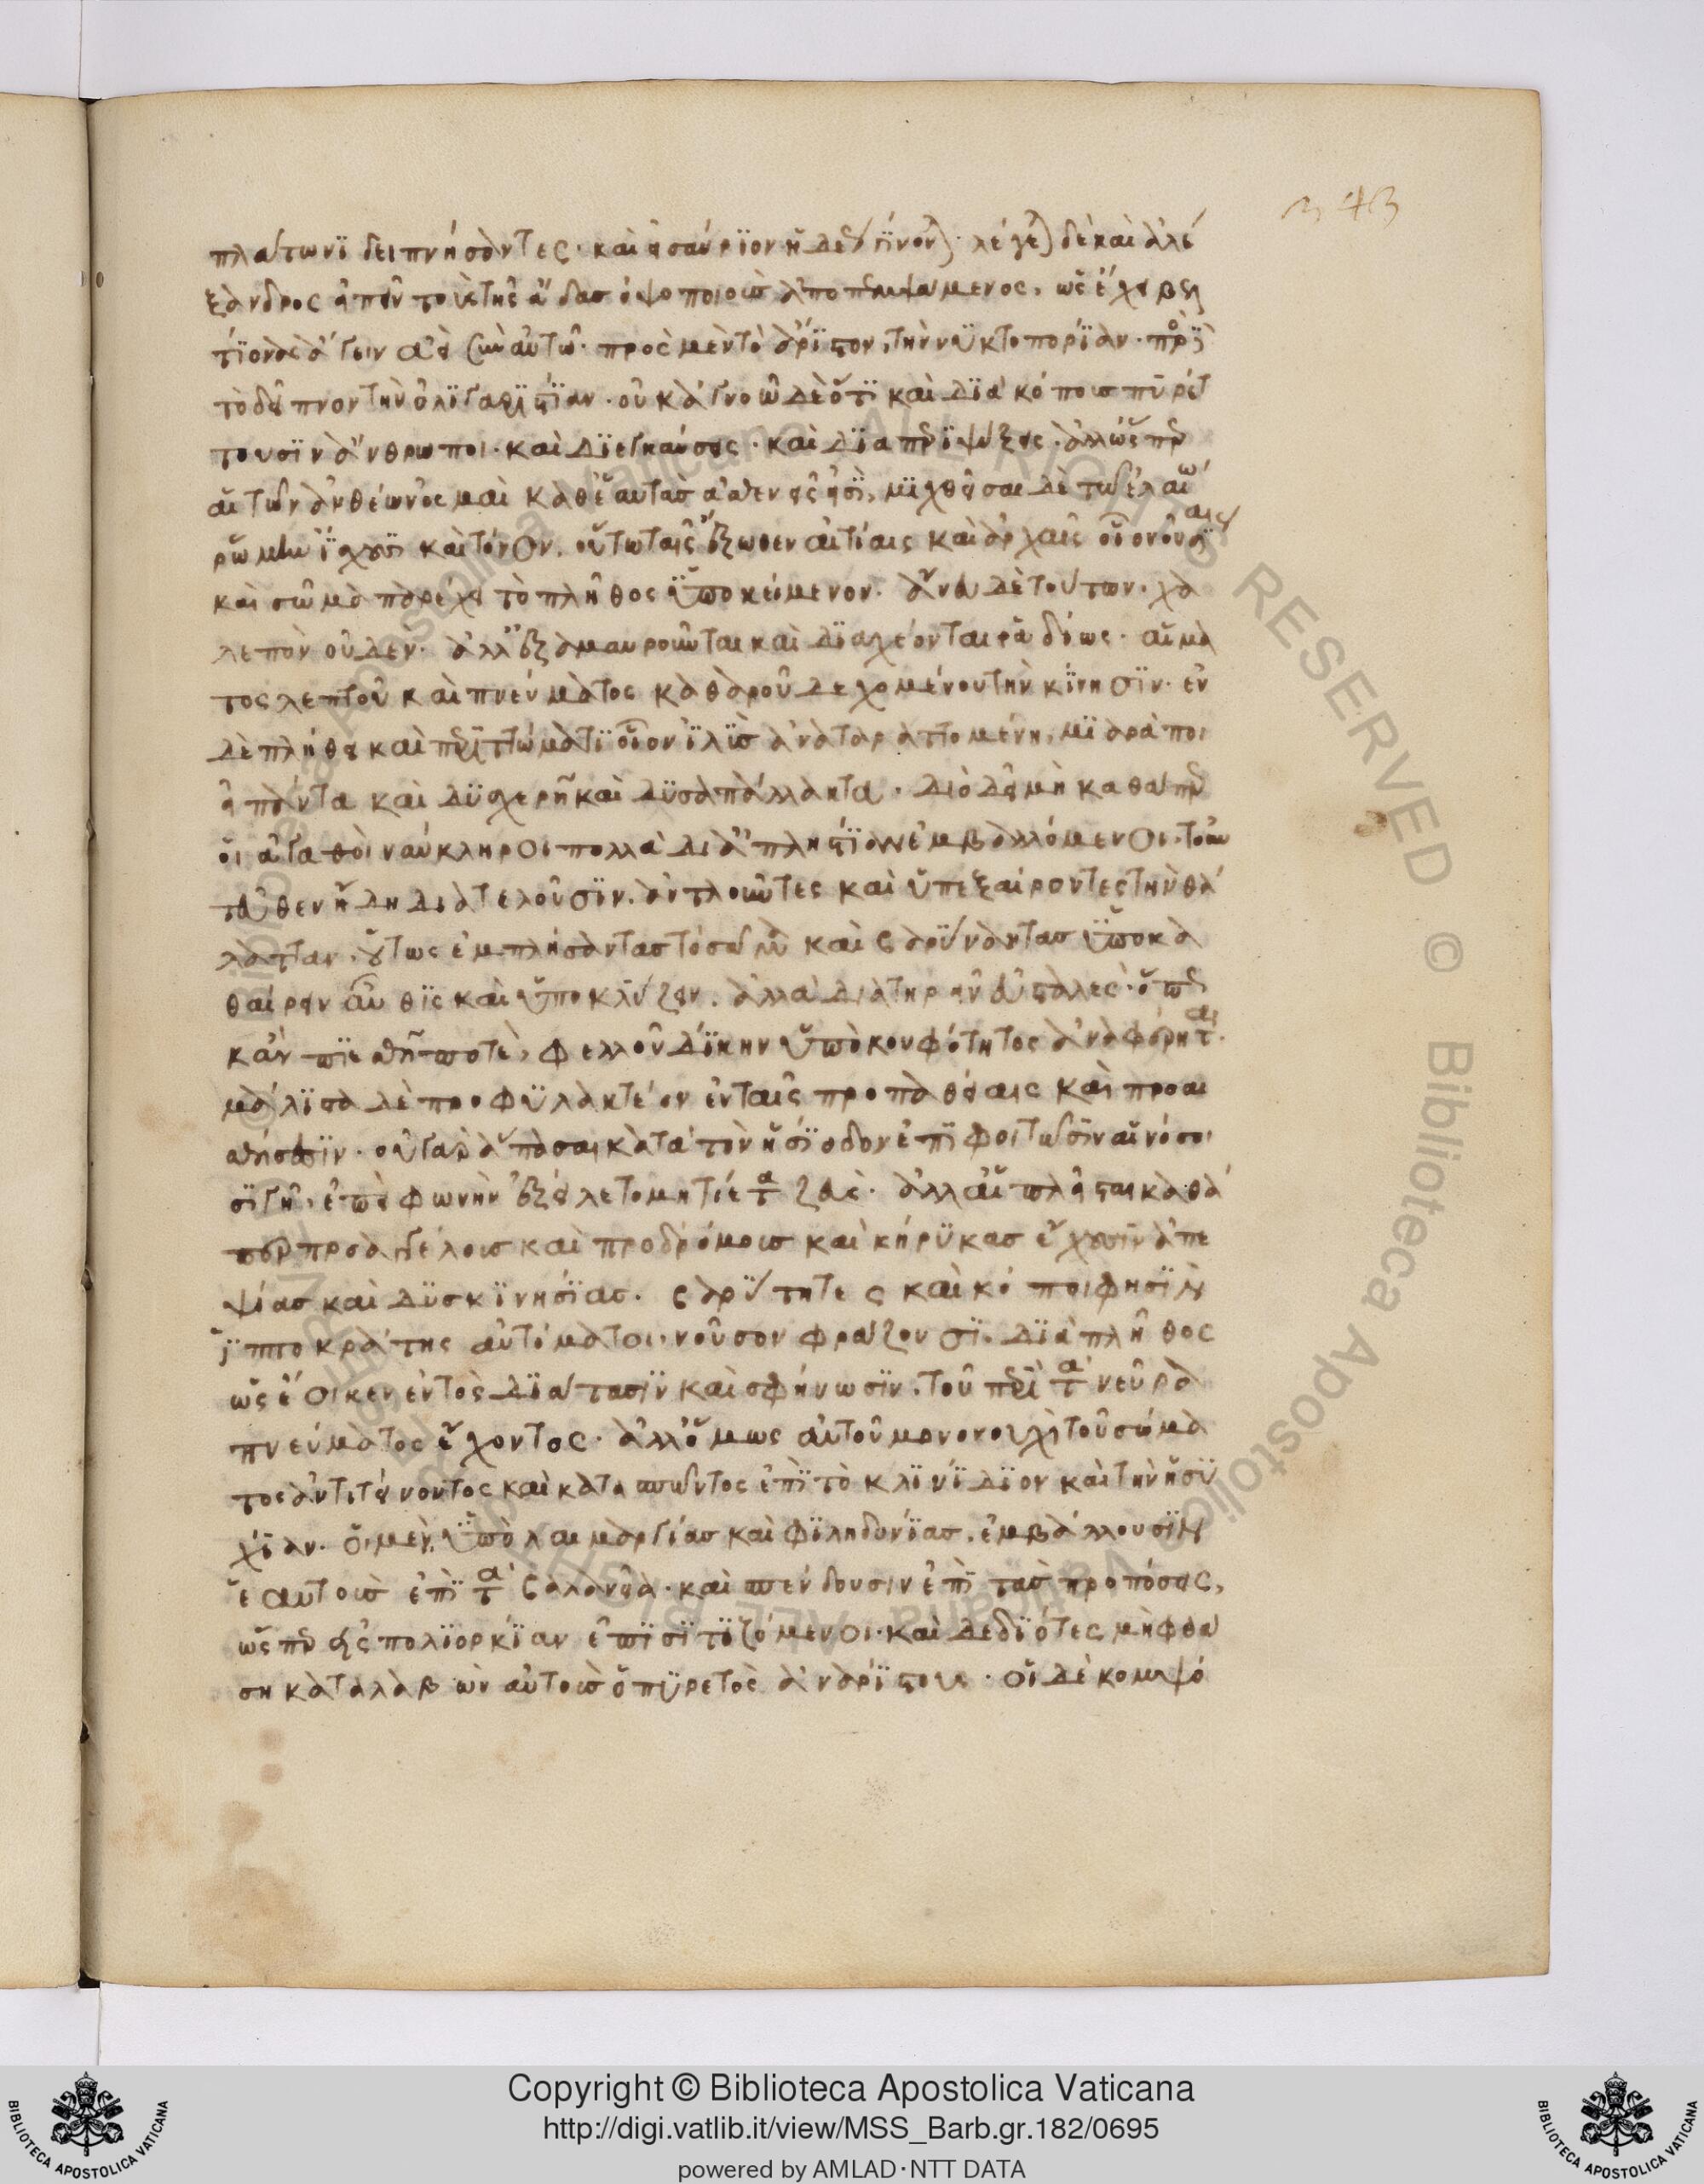 343
πλάτωνι δειπνήσαντες· καὶ εἰς αὔριον ἡδέως γίνονται· λέγεται δὲ καὶ ἀλέ
ξανδρος εἰπεῖν τοὺς τῆς ἄδας ὀψοποιοὺς ἀποπεμψάμενος, ὡς ἔχει βελ
τίονας ἄγειν ἀεὶ σὺν αὑτῷ· πρὸς μὲν τὸ ἄριστον, τὴν νυκτοπορίαν· πρὸς
τὸ δεῖπνον τὴν ὀλιγαριστίαν· οὐκ ἀγνοῶ δὲ ὅτι καὶ διὰ κόπους πυρέτ
τουσιν ἄνθρωποι· καὶ δι' ἐγκαύσεις· καὶ διὰ περιψύξεις· ἀλλ' ὥσπερ
αἱ τῶν ἀνθέων ὀσμαὶ καθ' ἑαυτὰς ἀσθενεῖς εἰσι, μιχθεῖσαι δὲ τῷ ἐλαίῳ
ῥώμην ἴσχουσι καὶ τόνον, οὕτω ταῖς ἔξωθεν αἰτίαις καὶ ἀρχαῖς οἷον οὐσίαν
καὶ σῶμα παρέχει τὸ πλῆθος ὑποκείμενον· ἄνευ δὲ τούτων, χα
λεπὸν οὐδέν· ἀλλ' ἐξαμαυροῦνται καὶ διαχέονται ῥᾳδίως· αἵμα
τος λεπτοῦ καὶ πνεύματος καθαροῦ δεχομένου τὴν κίνησιν· ἐν
δὲ πλήθει καὶ περιττώματι οἷον ἰλὺς ἀναταραττομένη, μιαρὰ ποι
εῖ πάντα καὶ δυσχερῆ καὶ δυσαπάλλακτα· διὸ δεῖ μὴ καθάπερ
οἱ ἀγαθοὶ ναύκληροι πολλὰ δι' ἀπληστίαν ἐμβαλλόμενοι, τοὐν
τεῦθεν ἤδη διατελοῦσιν, ἀντλοῦντες καὶ ὑπεξαίροντες τὴν θά
λατταν, οὕτως ἐμπλήσαντας τὸ σῶμα καὶ βαρύναντας ὑποκα
θαίρειν αὖθις καὶ ὑποκλύζειν, ἀλλὰ διατηρεῖν εὐσταλές· ὅπως
κἂν πιεσθῇ ποτὲ, φελλοῦ δίκην ὑπὸ κουφότητος ἀναφέρηται·
μάλιστα δὲ προφυλακτέον ἐν ταῖς προπαθείαις καὶ προαι
σθήσεσιν· οὐ γὰρ ἅπασαι κατὰ τὸν ἡσίοδον ἐπιφοιτῶσιν αἱ νόσοι
σιγῇ, ἐπεὶ φωνὴν ἐξείλετο μητίετα ζεύς· ἀλλ' αἱ πλεῖσται καθά
περ προαγγέλους καὶ προδρόμους καὶ κήρυκας ἔχουσιν ἀπε
ψίας καὶ δυσκινησίας· βαρύτητες καὶ κόποι φησὶν
ἱπποκράτης αὐτόματοι, νοῦσον φράζουσι. διὰ πλῆθος
ὡς ἔοικεν ἐντὸς διάτασιν καὶ σφήνωσιν, τοῦ περὶ τὰ νεῦρα
πνεύματος ἔχοντος· ἀλλ' ὅμως αὐτοῦ μονονουχὶ τοῦ σώμα
τος ἀντιτείνοντος καὶ κατασπῶντος ἐπὶ τὸ κλινίδιον καὶ τὴν ἡσυ
χίαν· οἱ μὲν ὑπὸ λαιμαργίας καὶ φιληδονίας, ἐμβάλλουσιν
ἑαυτοὺς ἐπὶ τὰ βαλανεῖα· καὶ σπεύδουσιν ἐπὶ τὰς προπόσεις,
ὥσπερ εἰς πολιορκίαν ἐπισιτιζόμενοι· καὶ δεδιότες μὴ φθά
σῃ καταλαβὼν αὐτοὺς ὁ πυρετὸς ἀναρίστους· οἱ δὲ κομψό
Copyright © Biblioteca Apostolica Vaticana
http://digi.vatlib.it/view/MSS_Barb.gr.182/0695
powered by AMLAD·NTT DATA